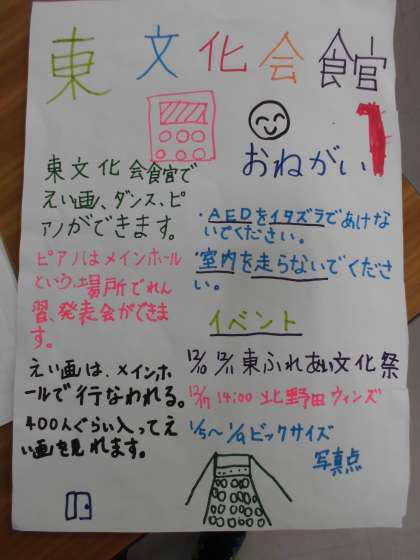 東文化会館
おねがい
東文化会館で
えい画、ダンス、ピ
アノができます。
ピアノはメインホール
という場所でれん
習、発表会ができま
す。
えい画は、メインホ
ールで行なわれる。
400人ぐらい入ってえ
い画を見れます。
・AEDをイタズラであけな
いでください。
・室内を走らないでくださ
い。
イベント
12/10 12/11 東ふれあい文化祭
12/17 14:00 北野田ウィンズ
1/5～1/9ビックサイズ
写真点